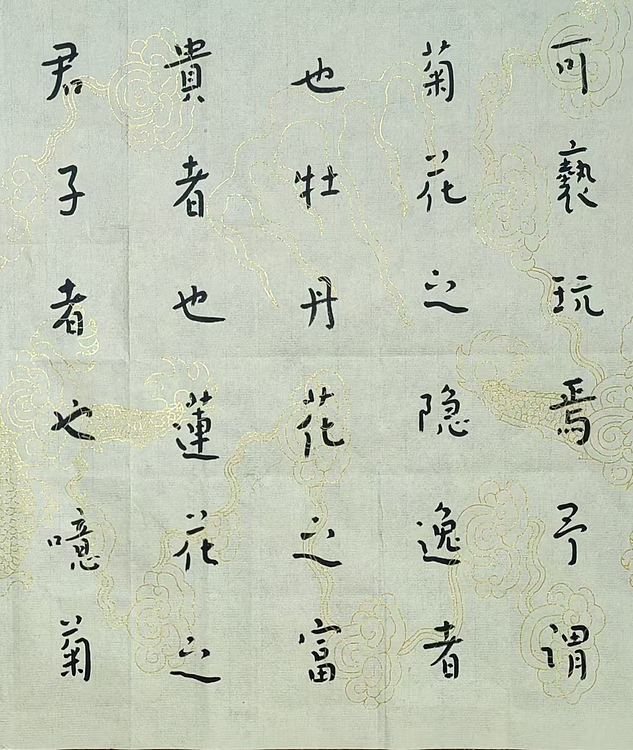 可褻玩焉予谓
菊花之隐逸者
也牡丹花之富
貴者也蓮花之
君子者也噫菊